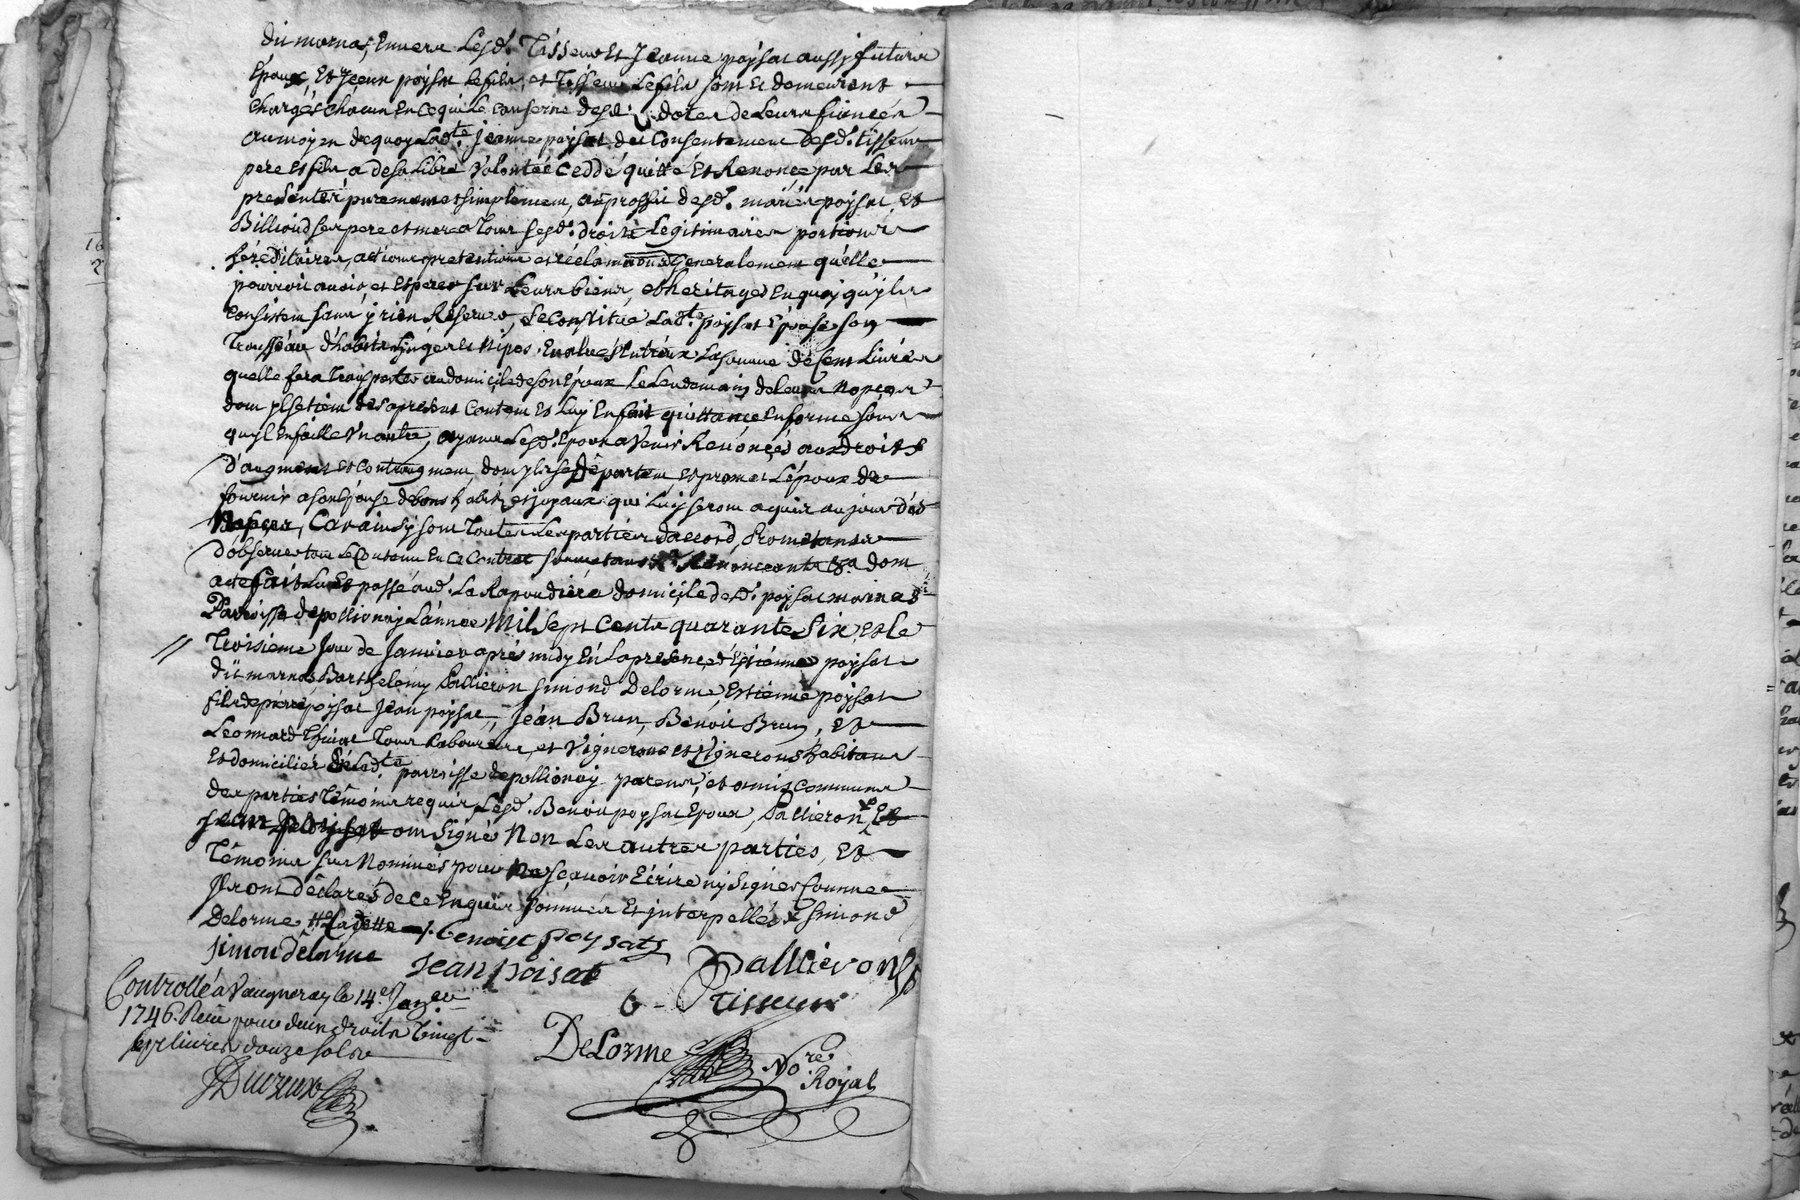 du mornas, Envers Lesd. Tisseur Et Jeanne poysat aussy futurs
Epoux Et Jean poysat Le fils, et Tisseur Le fils sont Et demeurent
Chargés chacun En ce qui Le conserne desd. dotes de Leurs fiancées
au moyen de quoy Lad.te Jeanne poysat du Consentement desd. tisseur
pere Et fils a de sa Libre Volontée Ceddé quitté Et Renoncé par Les
presentes purement et simplement, au proffit desd. mariés poysat Et
Billioud ses pere et mere a Tous sesd. droits Legitimaires portions
hereditaires, actions pretentions et réclamations Generalement quelle
pourroit avoir et Esperer sur Leurs biens, et heritages En quoy qu'yls
Consistent sans y rien Reserver, Se Constitue Lad.te poysat Epouse son
Trousseau d'habits Linges Et Nipes Evalué Entreux La somme de Cent Livres
quelle fera Transporter au domicile de son Epoux Le Lendemain de leurs Nopces
dont yl se tient des apresent Content Et Luy En fait quittance En forme sans
quyl En faille d'autre, ayant Lesd. Epoux a Venir Renoncés aux droits
d'augment et Contraugment, dont yls se départent, et promet L'époux de
fournir a son Epouse de bons habits et joyaux qui Luy seront aquis au jour des
Nopces, Car ainsy sont Toutes Les parties d'accord, Prometants
d'observer tout Le Contenu En Ce Contrat soumetants Renonceants &a dont
acte fait Lu Et passé aud. La Rapoudiere domicile desd. poysat mariés
Parroisse de pollionay L'année Mil sept Cents quarante Six, et le
Troisieme Jour de Janvier apres midy En La presence d'Estienne poysat
du mornas Barthelemy Pallieron Simond Delorme, Estienne poysat
fils de pierre poysat Jean poysat, Jean Brun, Benoit Brun, Et
Leonnard Thivat Tous Laboureurs, et Vignerons et Vignerons habitans
Et domiciliés de Lad.te parroisse de pollionay parens, et amis communs
des parties Témoins requis Lesd. Benoit poysat Epoux, Pallieron, Et
Jean Poysat ont Signés Non Les autres parties, Et
Témoins sus Nommés pour Ne sçavoir Ecrire ny Signer Comme
Ils ont déclarés de ce Enquis sommés Et interpellés x Simond
Delorme
benoist poysat
simon delorme
Jean poisat
Pallieron
6 - Ptisseur
Controllé a Vaugneray le 14.e Janv.er
1746. Reçu pour deux droits Vingt
sept livres douze sols
DeLorme No.re Royal
Ducreux